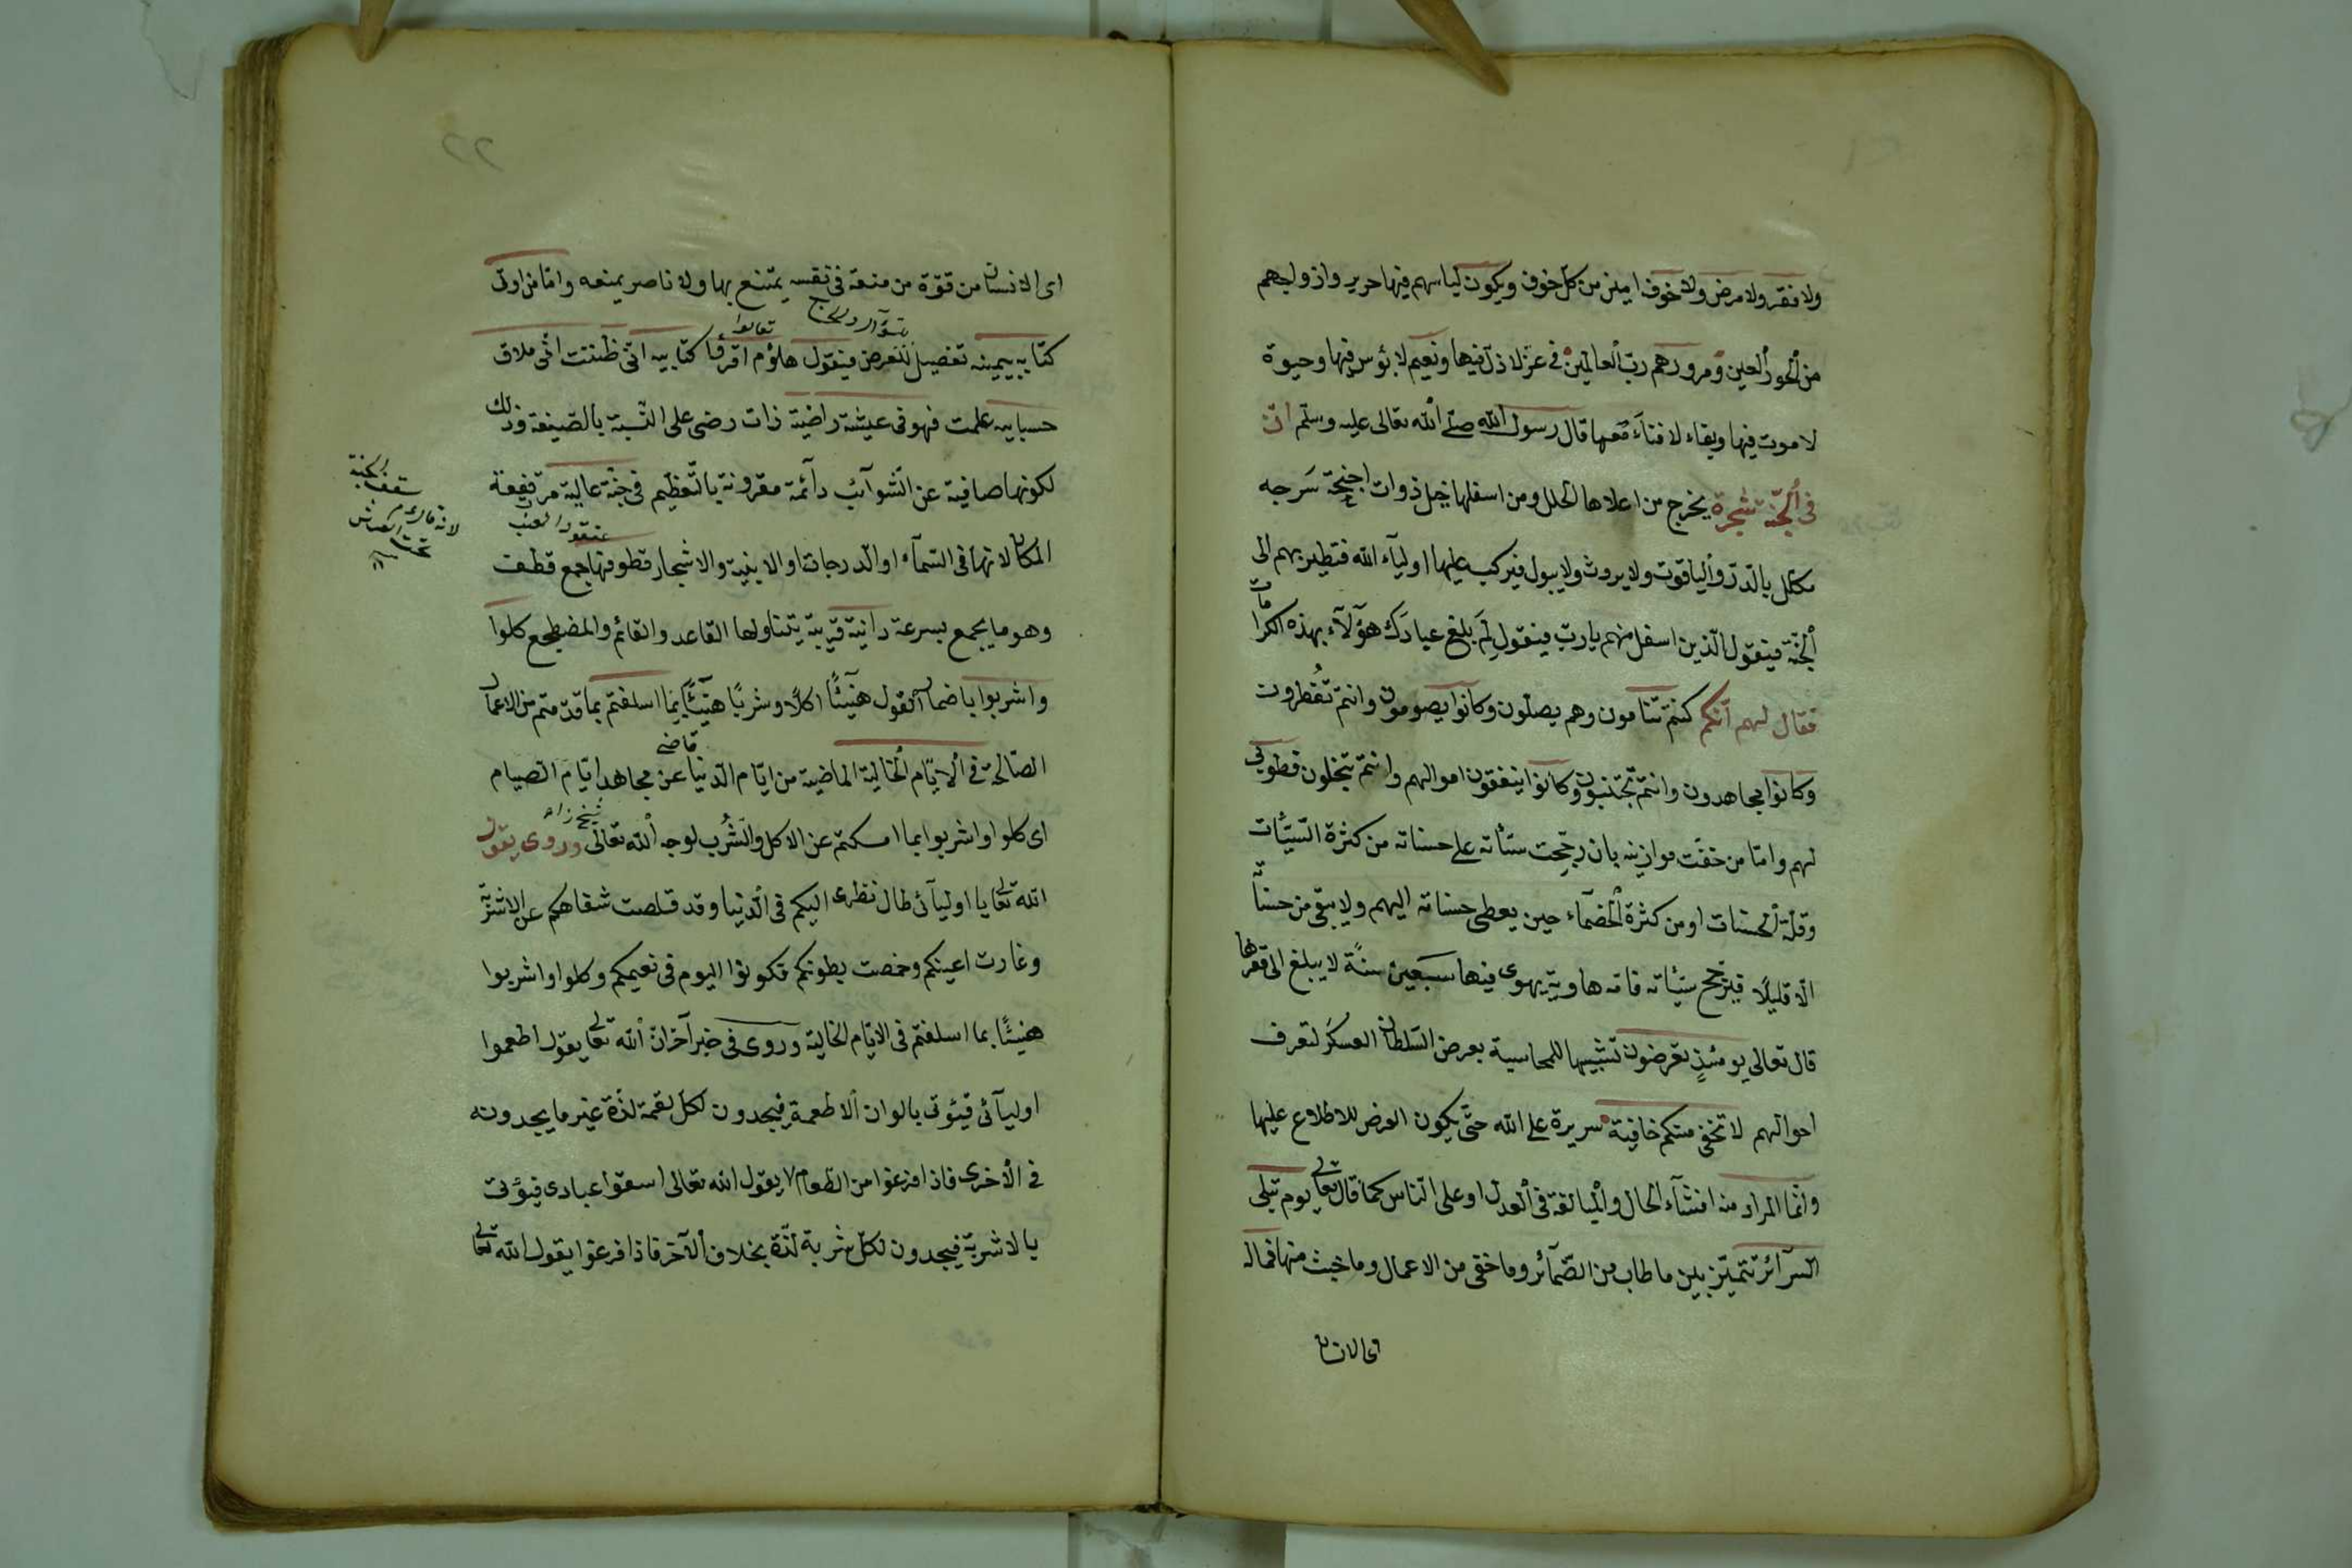 ولا فقر ولا مرض ولا خوف امنين من كلّ خوف ويكون لباسهم فيها حرير وازواجهم
من ألحور ألعين ومرورهم ربّ ألعالمين في عزّ لا ذلّ فيها ونعيم لا بؤس فيها وحيوة
لا موت فيها وبقاء لا فناء معها قال رسول الله صلّى الله تعالى عليه وسلّم انّ
في ألجنّة شجرة يخرج من اعلاها الحلل ومن اسفلها خيل ذوات اجنحة سرجه
مكلل بالدّرّ وألياقوت ولا يروث ولا يبول فيركب عليها اولياء الله فتطير بهم الى
ألجنّة فيقول الّذين اسفل منهم يا ربّ فيقول لم بلغ عبادك هؤلآء بهذه الكرامات
فقال لهم انّكم كنتم تنامون وهم يصلّون وكانوا يصومون وانتم تُفطرون
وكانوا يجاهدون وانتم تجتنبون وكانوا ينفقون اموالهم وانتم تبخلون فطوبى
لهم وامّا من خفّت موازينه بان رجّحت سيّئاته على حسناته من كثرة السّيّئات
وقلّة ألحسنات او من كثرة ألخصمآء حين يعطى حسناته اليهم ولا يبقى من حسناته
الّا قليلًا فيرجّح سيّئاته فامّه هاوية يهوى فيها سبعين سنةً لا يبلغ الى قعرها
قال تعالى يومئذٍ تعرضون تشبيها للمحاسبة بعرض السّلطان العسكر لتعرف
احوالهم لا تخفى منكم خافية سريرة على الله حتّى يكون العرض للاطلاع عليها
وانّما المراد منه افشآء الحال وألمبالغة في ألعدل او على النّاس كما قال تعالى يوم تبلى
السّرآئر تتميّز بين ما طاب من الضّمآئر وما خفى من الاعمال وما خبث منها فما له
اى الانسان
٢٢
اى الانسان من قوّة من منعة في نفسه يمتنع بها ولا ناصر يمنعه وامّا من اوتى
تعالوا
كتابه بيمينه تفصيل للعرض فيقول هاؤم اقرؤا كتابيه انّى ظننت انّى ملاق
حسابيه علمت فهو في عيشة راضية ذات رضى على النّسبة بالصّيغة وذلك
لكونها صافية عن الشّوآئب دآئمة مقرونة بالتّعظيم في جنّة عالية مرتفعة
عنقود العنب
سقف الجنة
المكان لانّها في السّمآء او الدّرجات او الابنية والاشجار قطوفها جمع قطف
وهو ما يجمع بسرعة دانية قريبة يتناولها القاعد والقائم والمضطجع كلوا
واشربوا باضمار ألقول هنيئًا اكلًا وشربًا هنيئًا بما اسلفتم بما قدّمتم من الاعمال
الصّالحة في ألايّام ألخالية الماضية من ايّام الدّنيا عن مجاهد ايّام الصيام
قاضى
اى كلوا واشربوا بما امسكتم عن الاكل والشّرب لوجه ألله تعالى وروى يقول
شيخ زاده
الله تعالى يا اوليآئى طال نظرى اليكم في الدّنيا وقد قلصت شفاهكم عن الاشربة
وغارت اعينكم وخمصت بطونكم فكونوا اليوم في نعيمكم وكلوا واشربوا
هنيئًا بما اسلفتم في الايّام الخالية وروى في خبر آخر انّ ألله تعالى يقول اطعموا
اوليآئى فيؤتى بالوان ألاطعمة فيجدون لكلّ لقمة لذّة غير ما يجدونه
في الأخرى فاذا فرغوا من الطّعام يقول الله تعالى اسقوا عبادى فيؤتى
بالاشربة فيجدون لكلّ شربة لذّة بخلاف ألآخر فاذا فرغوا يقول الله تعالى